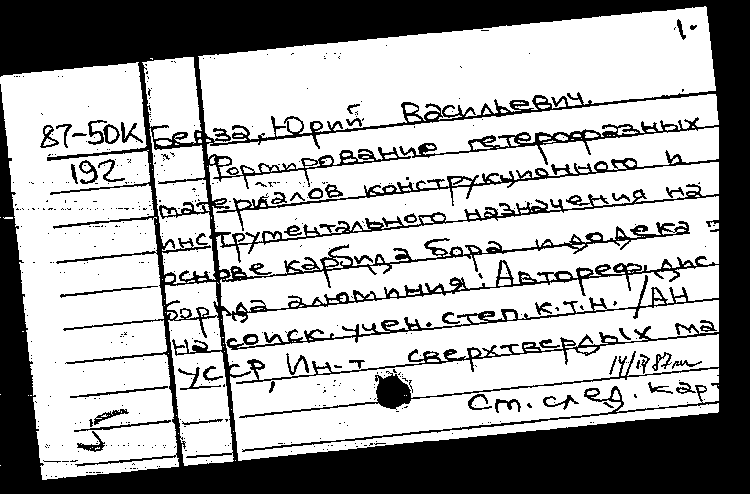 1.
87-50К Берза, Юрий Васильевич.
192 Формирование гетерофазных
материалов конструкционного и
инструментального назначения на
основе карбида бора и додека=
борида алюминия: Автореф. дис.
на соиск. учен. степ. к.т.н. / АН
УССР, Ин-т сверхтвердых ма
См. след. карт